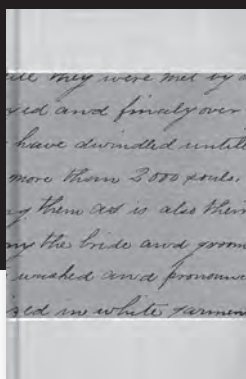 till they were met by a
xed and finaly over
have dwindled untill
more than 3000 souls.
ng them as is also their
ny the bride and groom
washed and pronounc
sed in white garmen